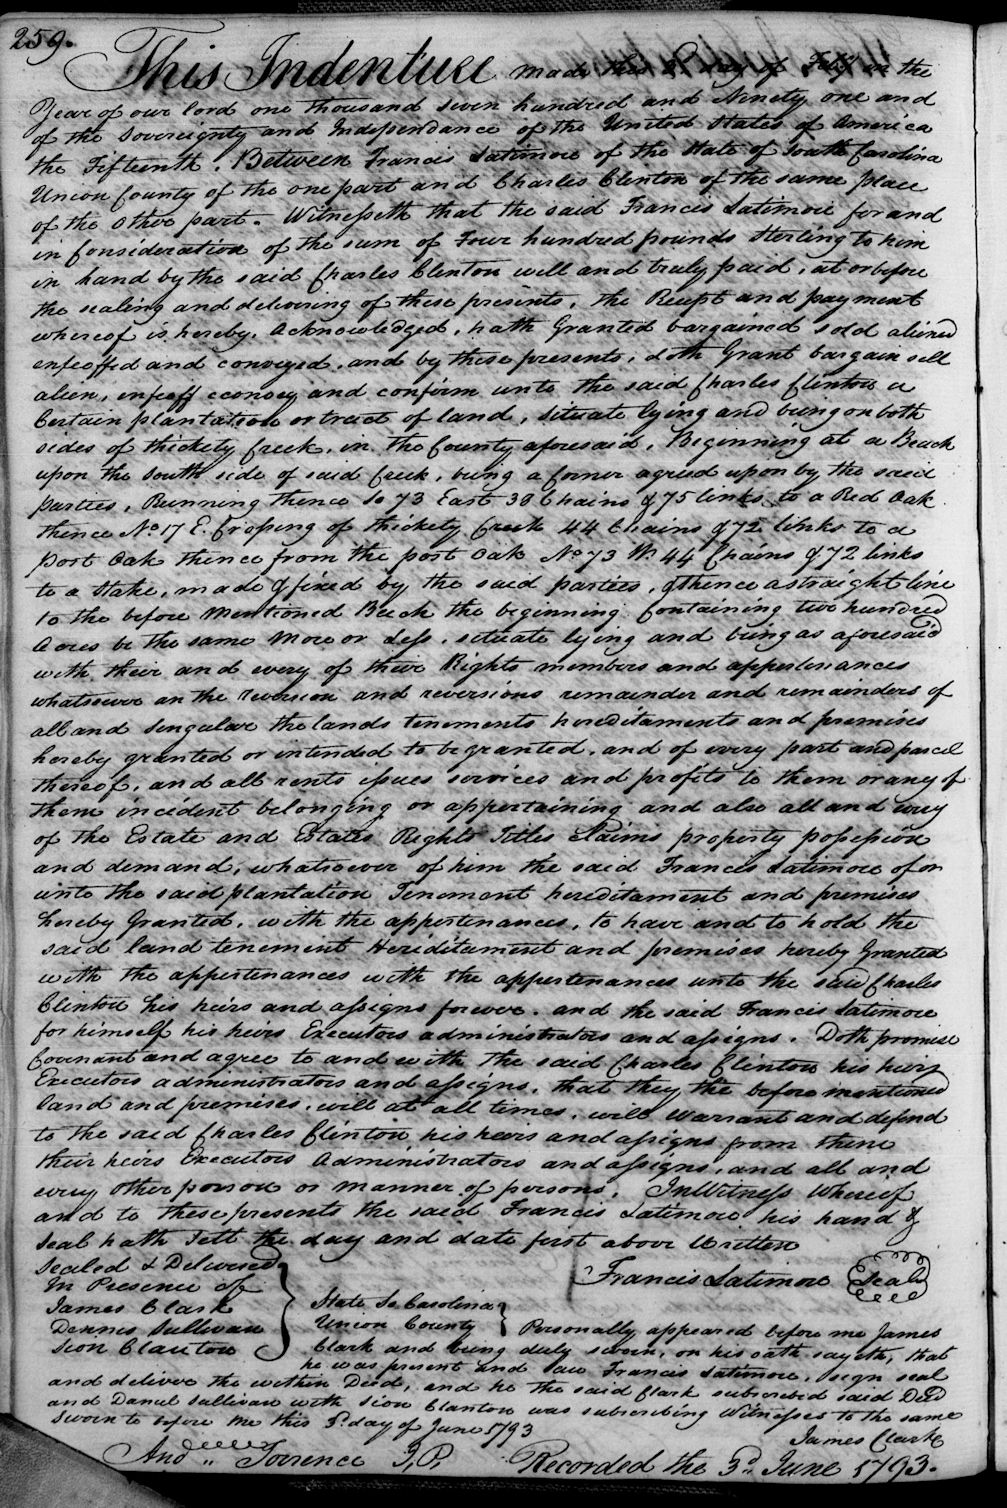 259.
This Indenture made this day of Feby in the
Year of our lord one thousand seven hundred and Ninety one and
of the Sovereignty and Independance of the United States of America
the Fifteenth. Between Francis Latimore of the State of South Carolina
Union County of the one part and Charles Clenton of the same place
of the other part. Witnesseth that the said Francis Latimore for and
in Consideration of the sum of Four hundred pounds Sterling to him
in hand by the said Charles Clenton well and truly paid, at or before
the sealing and delivering of these presents, the Receipt and payment
whereof is hereby, Acknowledged, hath Granted bargained sold aliened
enfeoffed and conveyed, and by these presents, doth Grant bargain sell
alien, enfeoff convey and confirm unto the said Charles Clinton a
Certain plantation or tract of land, situate lying and being on both
sides of thickety Creek, in the County aforesaid, Beginning at a Beach
upon the South side of said Creek, being a Corner agreed upon by the said
parties, Running thence So 73 East 38 Chains & 75 links to a Red Oak
thence No 17 E. Crossing of thickety Creek 44 Chains & 72 links to a
post Oak thence from the post Oak No 73 W 44 Chains & 72 links
to a Stake, made & fixed by the said parties, & thence a straight line
to the before Mentioned Beech the beginning Containing two hundred
Acres be the same More or Less, situate lying and being as aforesaid
with their and every of their Rights members and appertenances
whatsoever an the reversion and reversions remainder and remainders of
all and Singular the lands tenements hereditaments and premises
hereby granted or intended to be granted, and of every part and parcel
thereof, and all rents issues services and profits to them or any of
them incident belonging or appertaining and also all and every
of the Estate and Estates Rights Titles Claims property possession
and demand, whatsoever of him the said Francis Latimore of or
unto the said plantation Tenement hereditament and premises
hereby Granted, with the appertenances, to have and to hold the
said land tenement Hereditament and premises hereby Granted
with the appertenances with the appertenances unto the said Charles
Clenton his heirs and assigns forever. and the said Francis Latimore
for himself his heirs Executors administrators and assigns. Doth promise
Covenant and agree to and with the said Charles Clinton his heirs
Executors administrators and assigns, that they the before mentioned
land and premises, will at all times, will Warrant and defend
to the said Charles Clinton his heirs and assigns from them
their heirs Executors Administrators and assigns, and all and
every other person or manner of persons, In Witness Whereof
and to these presents the said Francis Latimore his hand &
Seal hath Sett the day and date first above Written
Sealed & Delivered
In Presence of
James Clark
Dennis Sullivan
Sion Clanton
Francis Latimore Seal
State So Carolina
Union County
Personally appeared before me James
Clark and being duly sworn, on his oath sayeth, that
he was present and saw Francis Latimore, sign seal
and deliver the within Deed, and he the said Clark subscribed said Deed
and Daniel Sullivan with Sion Clanton was subscribing Witnesses to the same
Sworn to before me this 3d. day of June 1793
James Clark
And Torrence J,P.
Recorded the 3d June 1793.